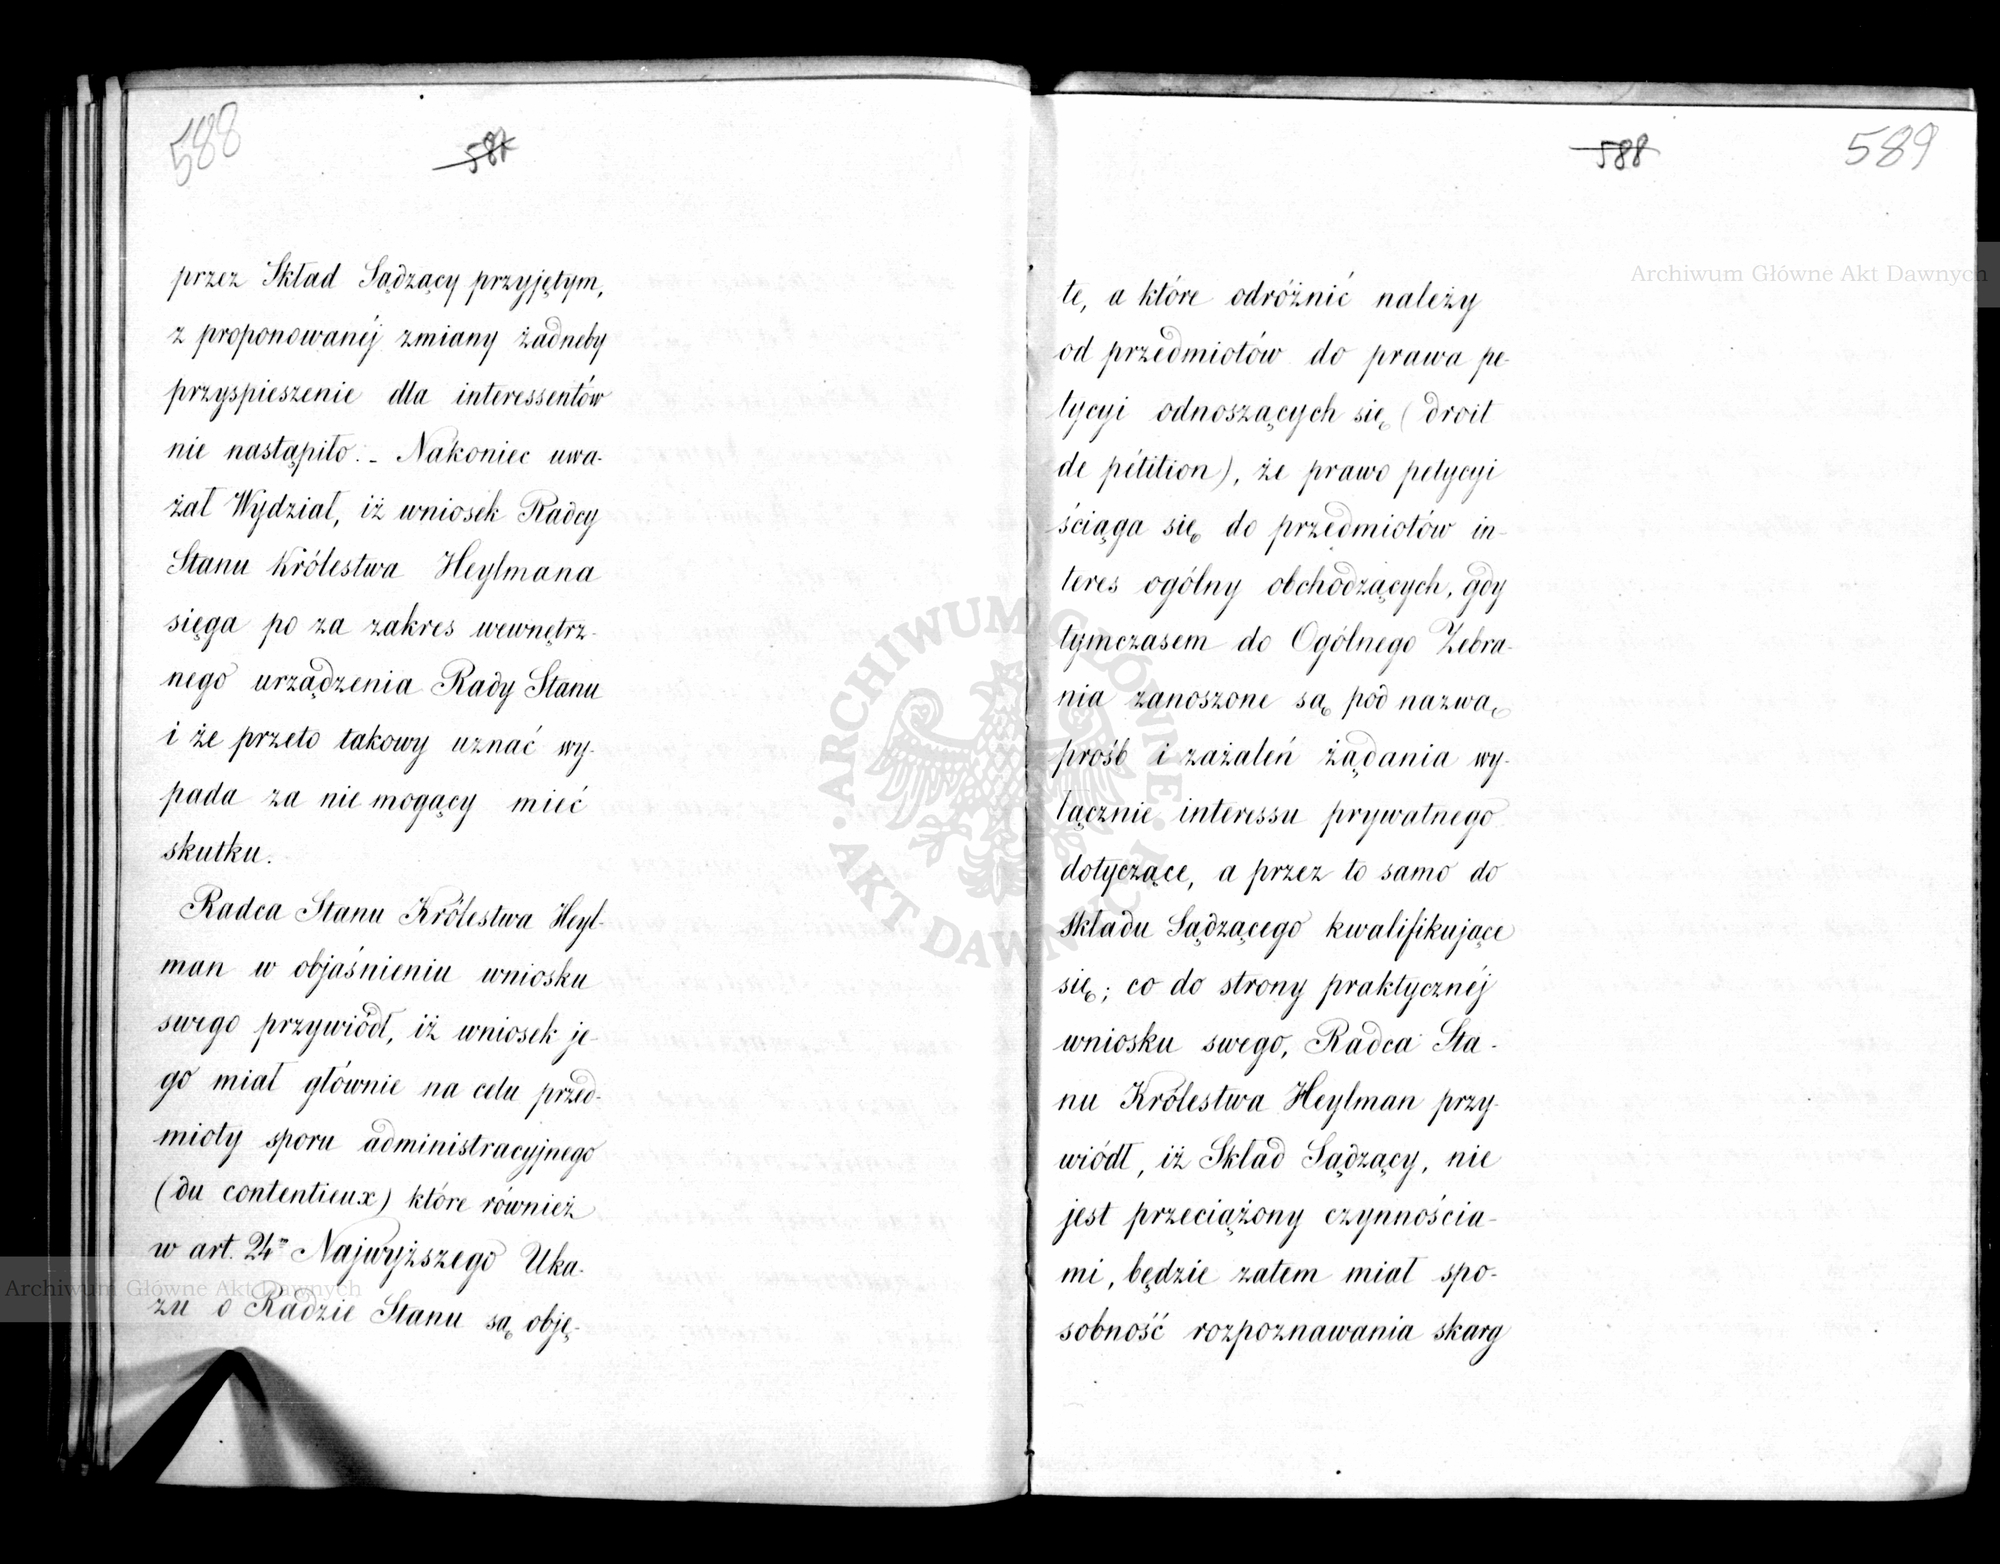 588
587
przez Skład Sądzący przyjętym,
z proponowanéj zmiany żadneby
przyspieszenie dla interessentów
nie nastąpiło. – Nakoniec uwa-
żał Wydział, iż wniosek Radcy
Stanu Królestwa Heylmana
sięga po za zakres wewnętrz-
nego urządzenia Rady Stanu
i że przeto takowy uznać wy-
pada za nie mogący mieć
skutku.
Radca Stanu Królestwa Heyl-
man w objaśnieniu wniosku
swego przywiódł, iż wniosek je-
go miał głównie na celu przed-
mioty sporu administracyjnego
(du contentieux) które również
w art. 24m Najwyższego Uka-
zu o Radzie Stanu są obję-
588
589
te, a które odróżnić należy
od przedmiotów do prawa pe-
tycyi odnoszących się (droit
de pétition), że prawo petycyi
ściąga się do przedmiotów in-
teres ogólny obchodzących, gdy
tymczasem do Ogólnego Zebra-
nia zanoszone są pod nazwą
prośb i zażaleń żądania wy-
łącznie interessu prywatnego
dotyczące, a przez to samo do
Składu Sądzącego kwalifikujące
się; co do strony praktycznéj
wniosku swego, Radca Sta-
nu Królestwa Heylman przy-
wiódł, iż Skład Sądzący, nie
jest przeciążony czynnościa-
mi, będzie zatem miał spo-
sobność rozpoznawania skarg
Archiwum Główne Akt Dawnych
Archiwum Główne Akt Dawnych
ARCHIWUM GŁÓWNE
AKT DAWNYCH